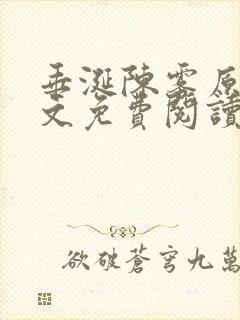 垂涎陳霧原
文免費閱讀
欲破蒼穹九萬